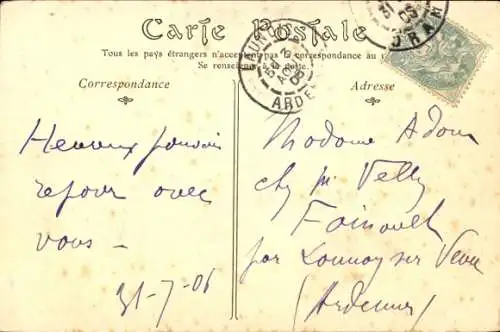 Carte Postale
Tous les pays étrangers n'acceptent pas la correspondance au
Se renseigner à la poste.
Correspondance
Adresse
ARDE
ORAN
Heureux pouvoir
repour avec
vous —
31-7-06
Madame Adam
chez Mr Velly
par Launoy sur Vence
(Ardennes)